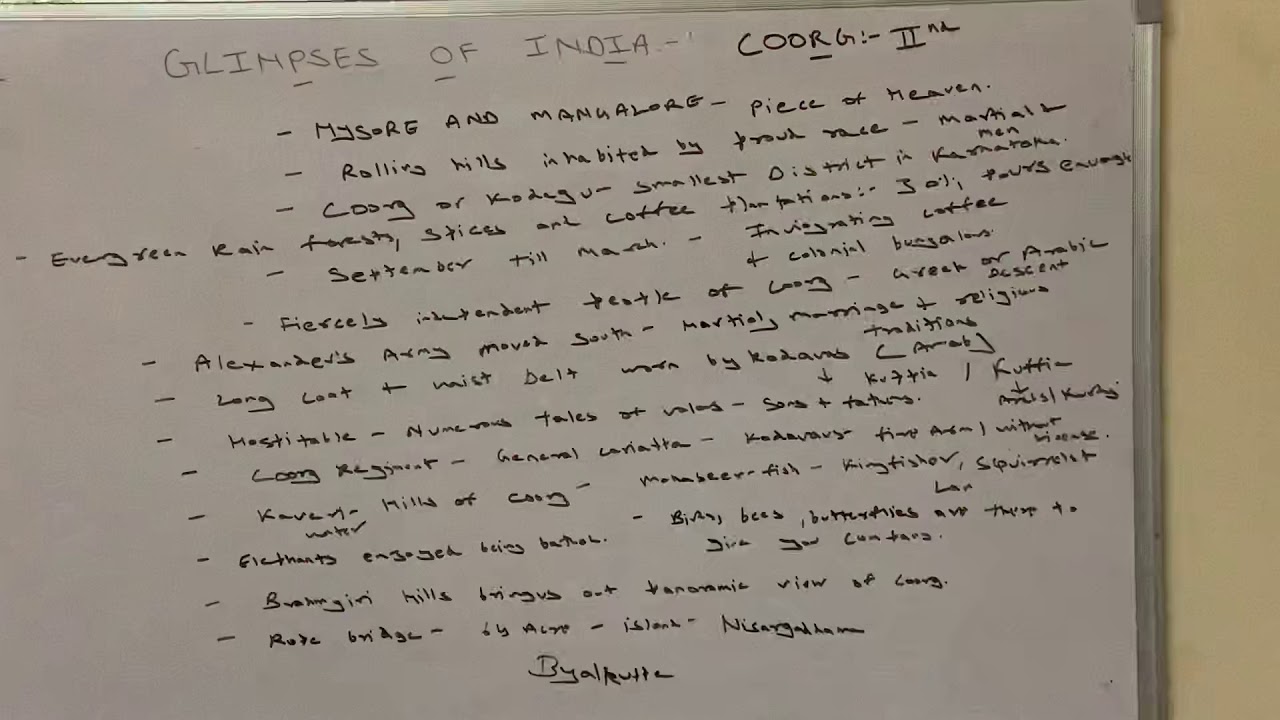 GLIMPSES OF INDIA - COORG:- IInd
- MYSORE AND MANGALORE - Piece of Heaven.
- Rolling hills inhabited by proud race - martial men
- Coorg or Kodagu - smallest District in Karnataka.
- Evergreen Rain forests, spices and coffee plantations:- 30%, pours enough
- September till March. - Invigorating coffee
+ colonial bungalows.
- Fiercely independent people of Coorg - Greek or Arabic Descent
- Alexander's Army moved south - martial, marriage + religious traditions
- Long Coat + waist Belt worn by Kodavas [Arab]
Kuppia / Kuffia
- Hospitable - Numerous tales of valor - sons + fathers. Arabs/Kurds
- Coorg Regiment - General Cariappa - Kodavas fire Arm / without license.
- Kaveri - Hills of Coorg - Mahaseer-fish - Kingfisher, Squirrels +
water
- Elephants enjoyed being bathed. - Birds, bees, butterflies are there to
give you company.
- Brahmgiri hills bringus out panoramic view of Coorg.
- Rope bridge - 64 Acre - island - Nisargadhama